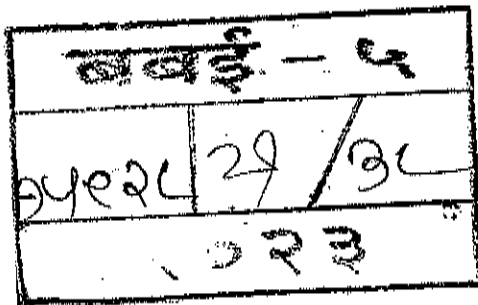 बबई - ५
१५९२८ २१ / ३८
२०२३